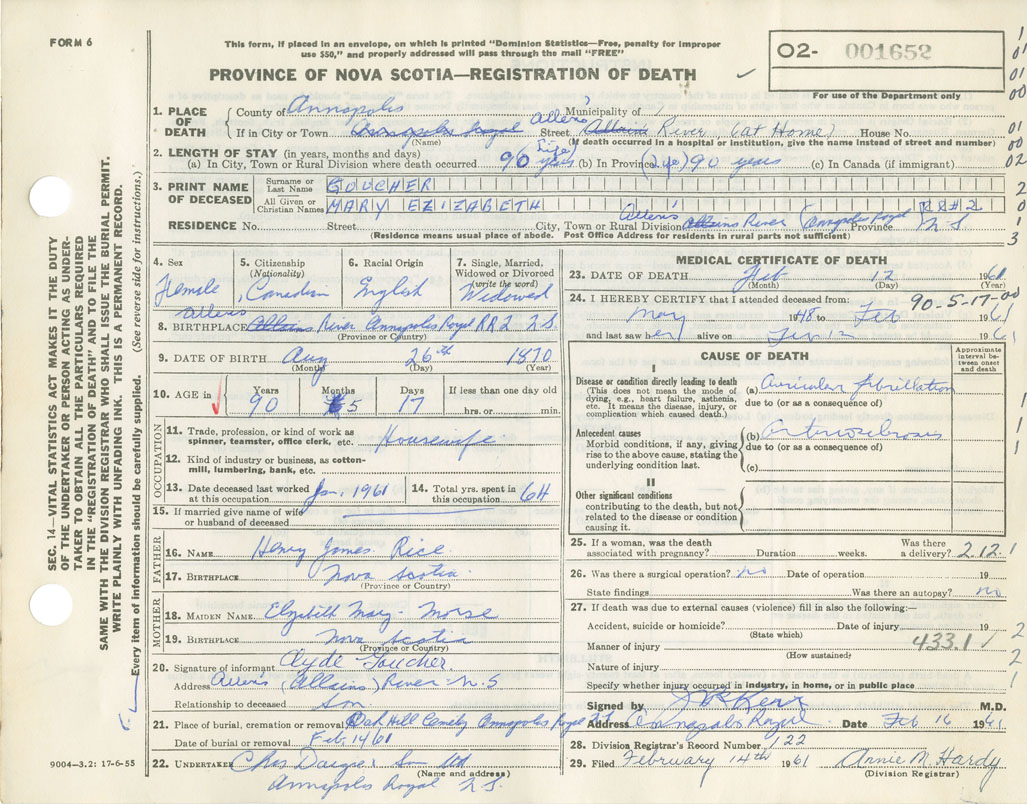 FORM 6
This form, if placed in an envelope, on which is printed "Dominion Statistics—Free, penalty for improper
use $50," and properly addressed will pass through the mail "FREE"
PROVINCE OF NOVA SCOTIA—REGISTRATION OF DEATH
O2- 001652
For use of the Department only
1. PLACE OF DEATH
County of Annapolis Municipality of
If in City or Town Annapolis Royal Street Allen's Allains River (at Home) House No.
(Name) (If death occurred in a hospital or institution, give the name instead of street and number)
2. LENGTH OF STAY (in years, months and days)
(a) In City, Town or Rural Division where death occurred 90 years (Life) (b) In Province (Life) 90 years (c) In Canada (if immigrant)
3. PRINT NAME OF DECEASED
Surname or Last Name GOUCHER
All Given or Christian Names MARY EZIZABETH
RESIDENCE No. Street City, Town or Rural Division Allen's Allains River (Annapolis Royal Province RR#2 N S
(Residence means usual place of abode. Post Office Address for residents in rural parts not sufficient)
4. Sex Female
5. Citizenship (Nationality) Canadian
6. Racial Origin English
7. Single, Married, Widowed or Divorced (write the word) Widowed
8. BIRTHPLACE Allens Allains River Annapolis Royal RR2 N.S.
(Province or Country)
9. DATE OF BIRTH Aug 26th 1870
(Month) (Day) (Year)
10. AGE in Years 90 Months 5 Days 17 If less than one day old hrs. or min.
OCCUPATION
11. Trade, profession, or kind of work as spinner, teamster, office clerk, etc. Housewife
12. Kind of industry or business, as cotton-mill, lumbering, bank, etc.
13. Date deceased last worked at this occupation Jan, 1961
14. Total yrs. spent in this occupation 64
15. If married give name of wife or husband of deceased
FATHER
16. NAME Henry James Rice
17. BIRTHPLACE Nova Scotia
(Province or Country)
MOTHER
18. MAIDEN NAME Elizabeth Mary - Morse
19. BIRTHPLACE Nova Scotia
(Province or Country)
20. Signature of informant Clyde Goucher
Address Allens (Allains) River - N.S
Relationship to deceased Son
21. Place of burial, cremation or removal Oak Hill Annapolis Royal
Date of burial or removal Feb 14 61
22. UNDERTAKER Chas Dargie & Son Ltd
(Name and address)
Annapolis Royal N.S.
9004—3.2: 17-6-55
MEDICAL CERTIFICATE OF DEATH
23. DATE OF DEATH Feb 12 1961
(Month) (Day) (Year)
90-5-17-00
24. I HEREBY CERTIFY that I attended deceased from:
May 1948 to Feb 1961
and last saw her alive on Feb 12 1961
CAUSE OF DEATH
Approximate interval between onset and death
I
Disease or condition directly leading to death
(This does not mean the mode of dying, e.g., heart failure, asthenia, etc. It means the disease, injury, or complication which caused death.)
(a) Auricular fibrillation
due to (or as a consequence of)
Antecedent causes
Morbid conditions, if any, giving rise to the above cause, stating the underlying condition last.
(b) Arteriosclerosis
due to (or as a consequence of)
(c)
II
Other significant conditions contributing to the death, but not related to the disease or condition causing it.
25. If a woman, was the death associated with pregnancy? Duration weeks. Was there a delivery? 2.12.1
26. Was there a surgical operation? no Date of operation 19
State findings Was there an autopsy? no
27. If death was due to external causes (violence) fill in also the following:—
Accident, suicide or homicide? Date of injury 19
(State which)
Manner of injury 433.1
(How sustained)
Nature of injury
Specify whether injury occurred in industry, in home, or in public place
Signed by Kerr M.D.
Address Annapolis Royal Date Feb 16 1961
28. Division Registrar's Record Number 122
29. Filed February 14th 1961 Annie M. Hardy
(Division Registrar)
SEC. 14—VITAL STATISTICS ACT MAKES IT THE DUTY
OF THE UNDERTAKER OR PERSON ACTING AS UNDER-
TAKER TO OBTAIN ALL THE PARTICULARS REQUIRED
IN THE "REGISTRATION OF DEATH" AND TO FILE THE
SAME WITH THE DIVISION REGISTRAR WHO SHALL ISSUE THE BURIAL PERMIT.
WRITE PLAINLY WITH UNFADING INK. THIS IS A PERMANENT RECORD.
Every item of information should be carefully supplied. (See reverse side for instructions.)